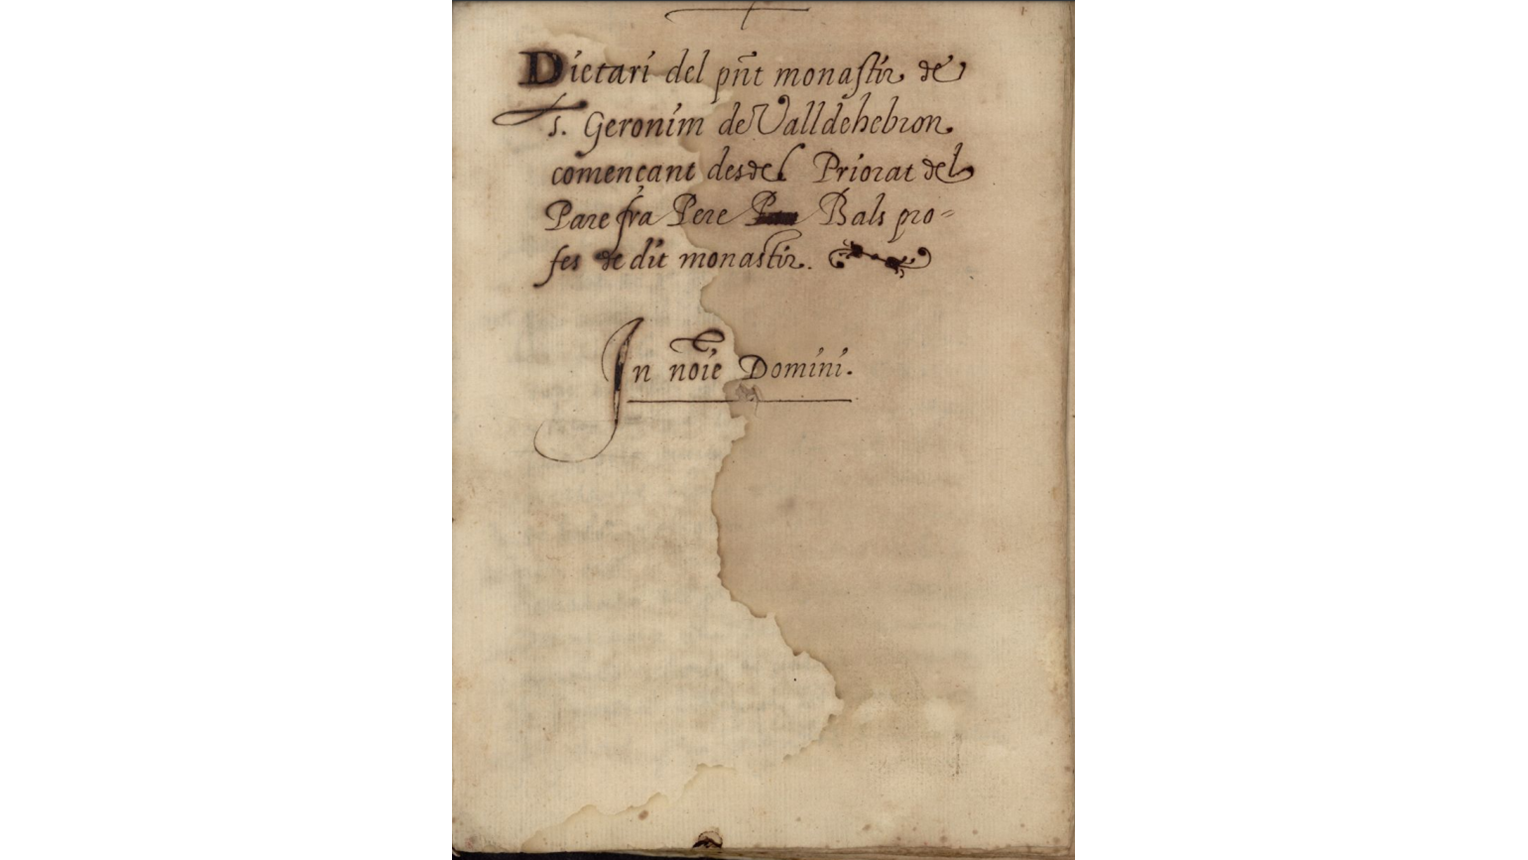 Dietari del pñt monastir de
s. Geronim de Valldehebron
començant desdel Priorat del
Pare fra Pere Bals pro-
fes de dit monastir.
In noĩe Domini.